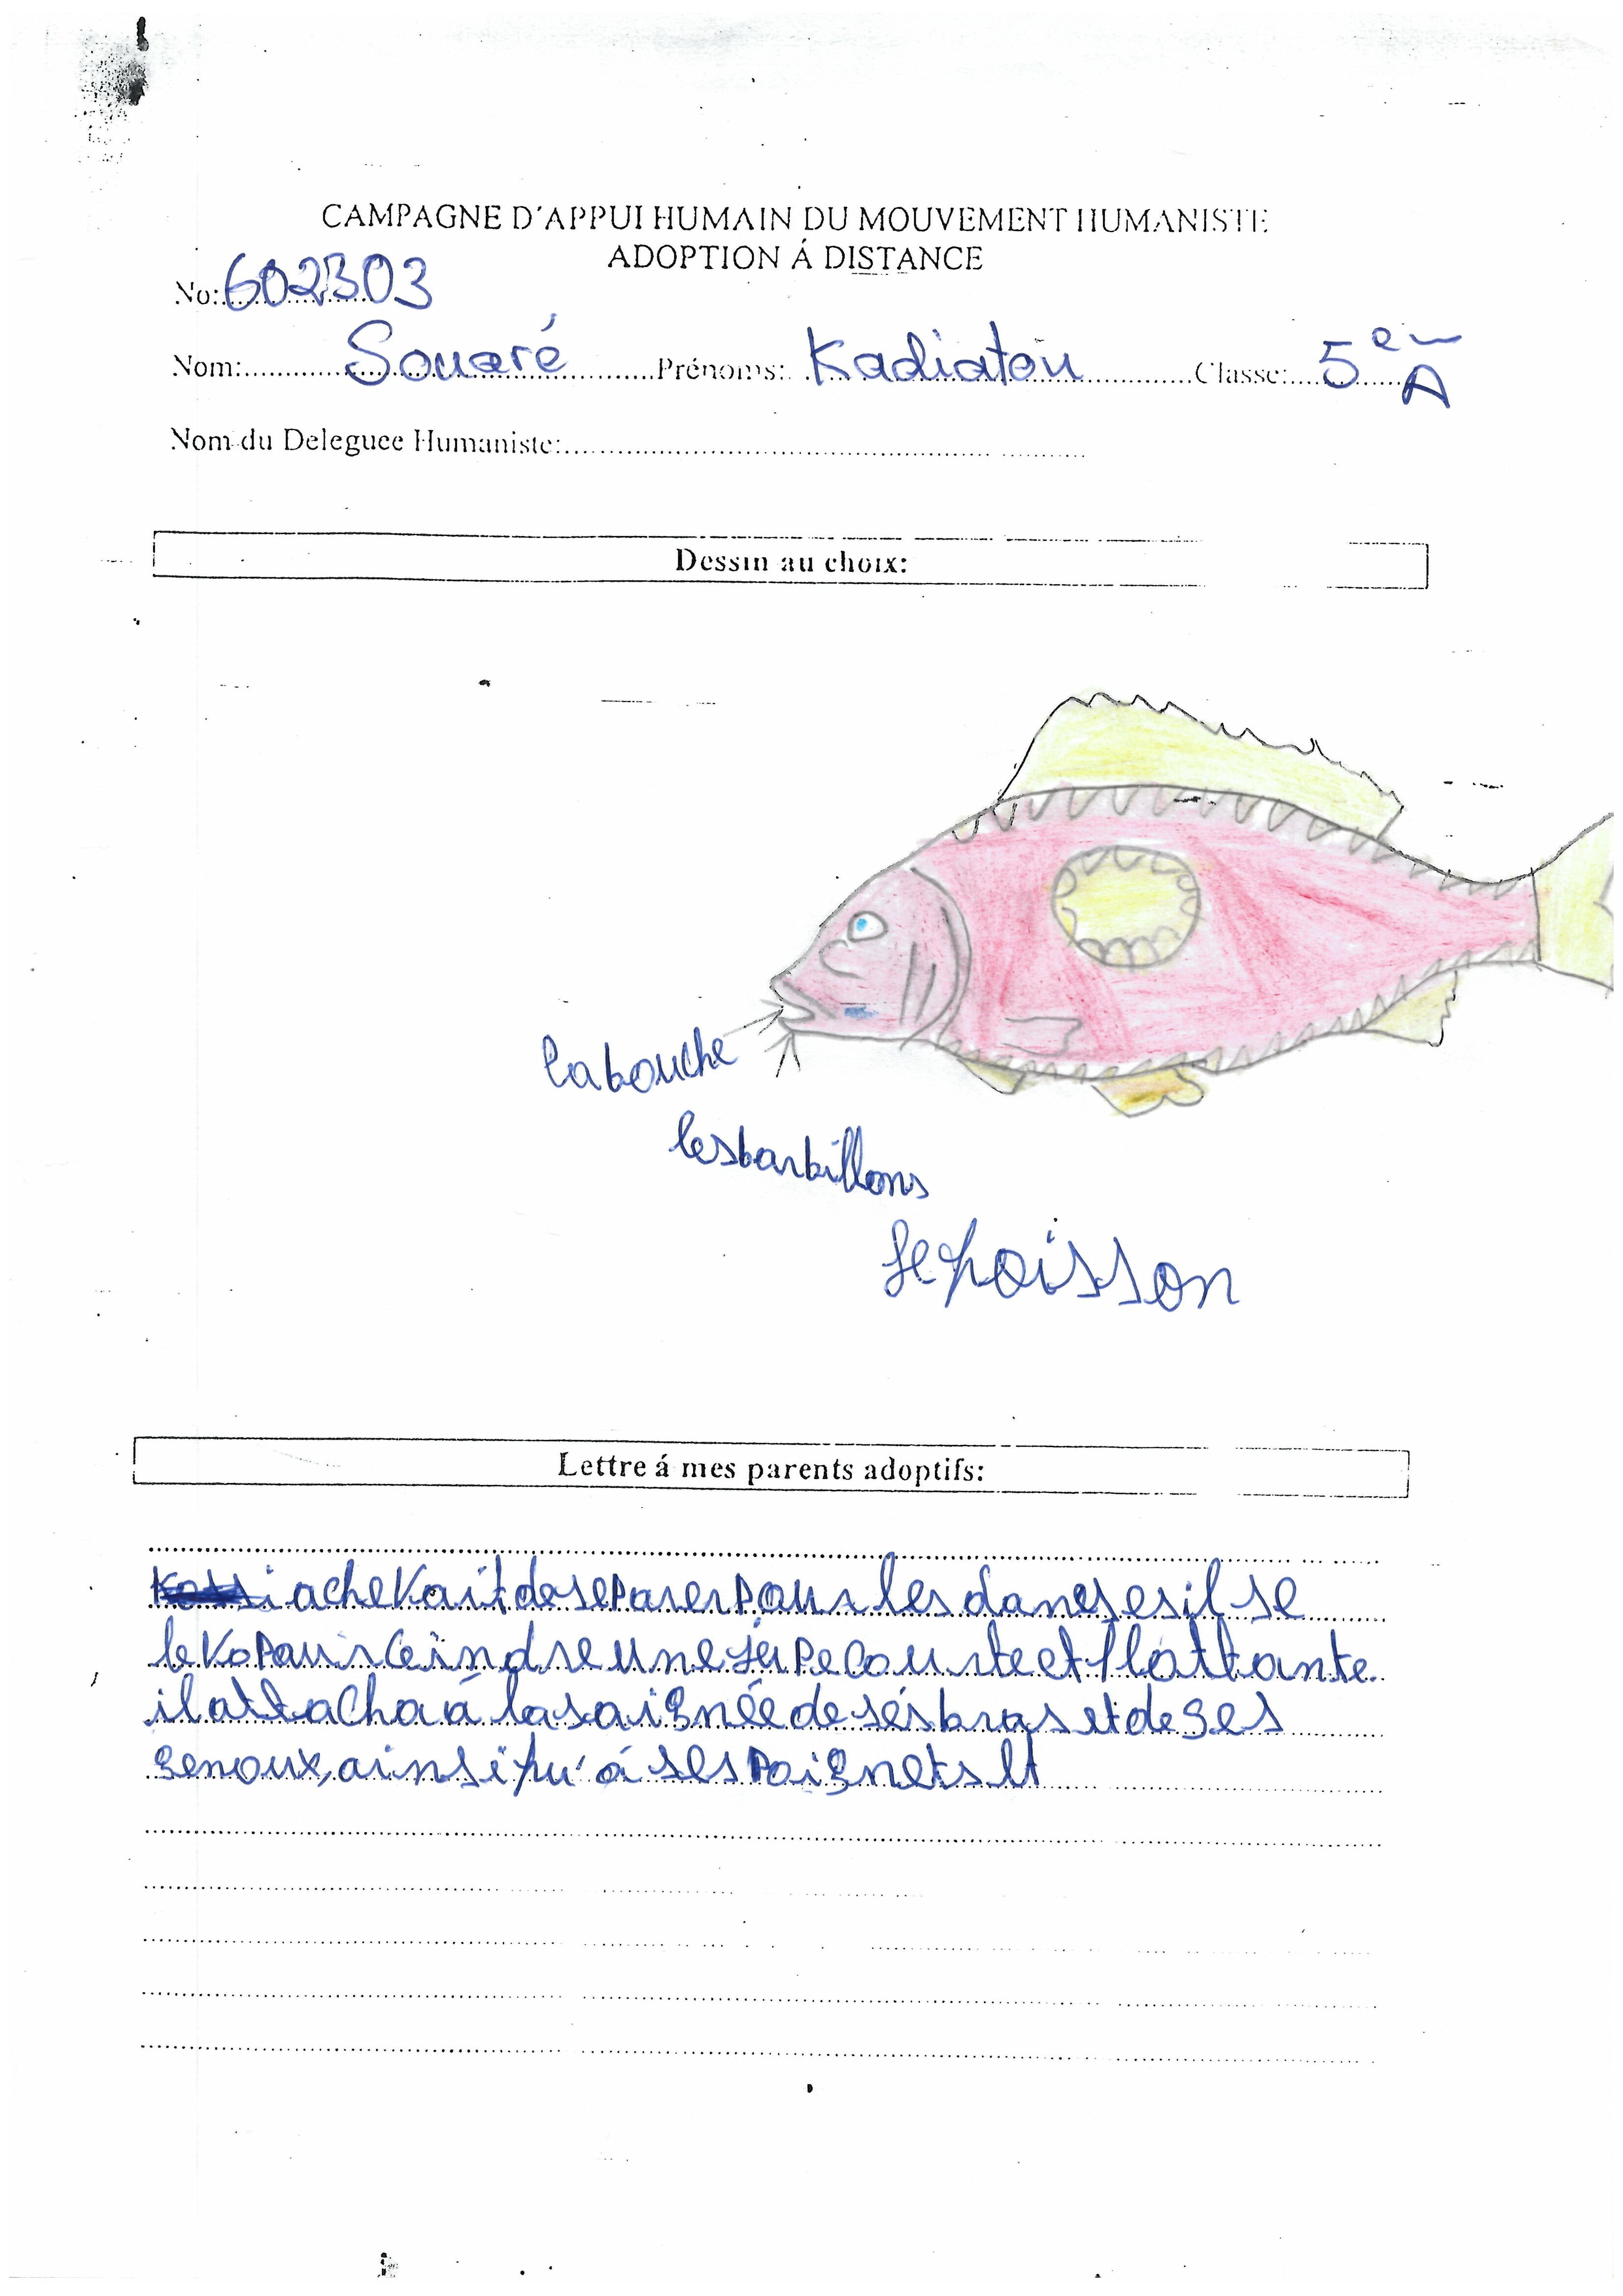 CAMPAGNE D'APPUI HUMAIN DU MOUVEMENT HUMANISTE
ADOPTION Á DISTANCE
No: 602303
Nom: Souaré Prénoms: Kadiatou Classe: 5e A
Nom du Deleguee Humaniste:
Dessin au choix:
la bouche
les barbillons
Le poisson
Lettre á mes parents adoptifs:
acheVait de se parer pour les danses il se
ceindre une jupe courte et flottante
il attacha á la saignée de ses bras et de ses
genoux, ainsi qu'á ses poignets et